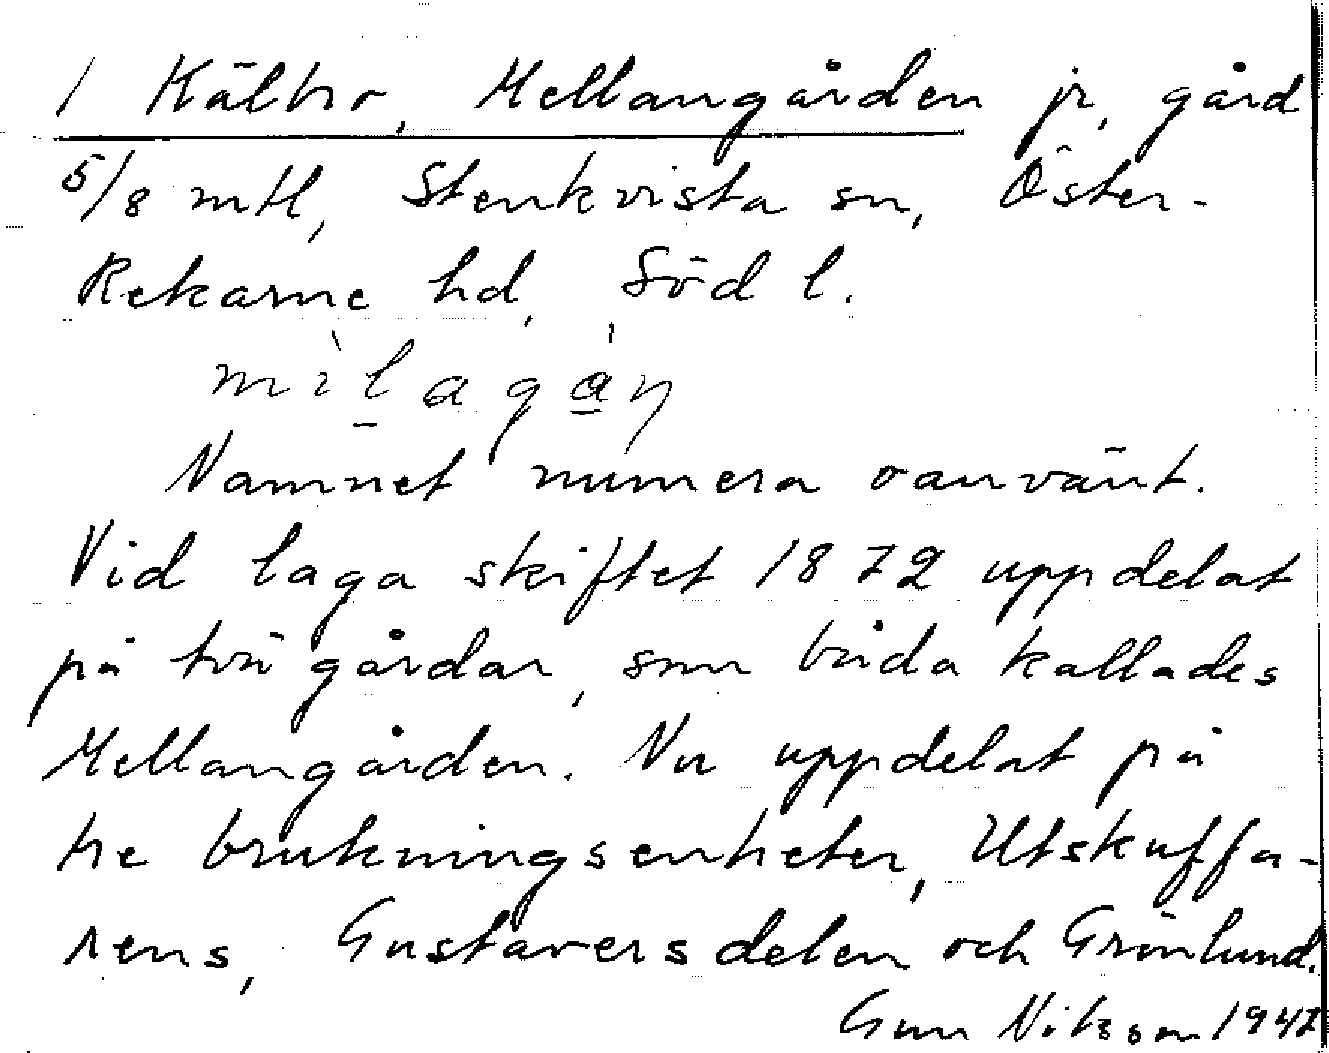 1 Kälbro, Mellangården jr, gård
5/8 mtl, Stenkvista sn, Öster-
Rekarne hd, Söd l.
mìlagá̱n
Namnet numera oanvänt.
Vid laga skiftet 1872 uppdelat
på två gårdar, som båda kallades
Mellangården. Nu uppdelat på
tre brukningsenheter, Utskuffa-
rens, Gustaversdelen och Grönlund.
Gun Nilsson 1947